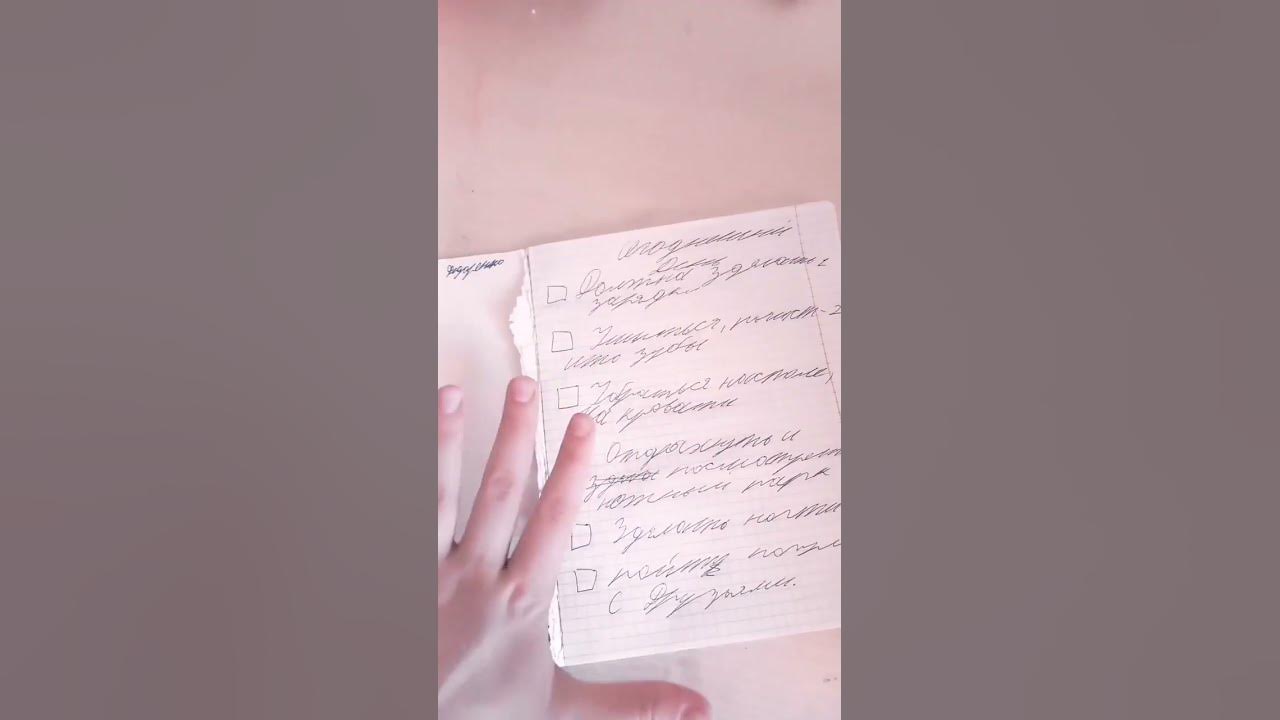 Сегодняшний
День
Должна зделать
зарядку
Умыться, почист-
ить зубы
Убраться на столе,
на кровати
Отдохнуть и
посмотреть
южный парк
Зделать ногти
пойти погул
с Друзьями.